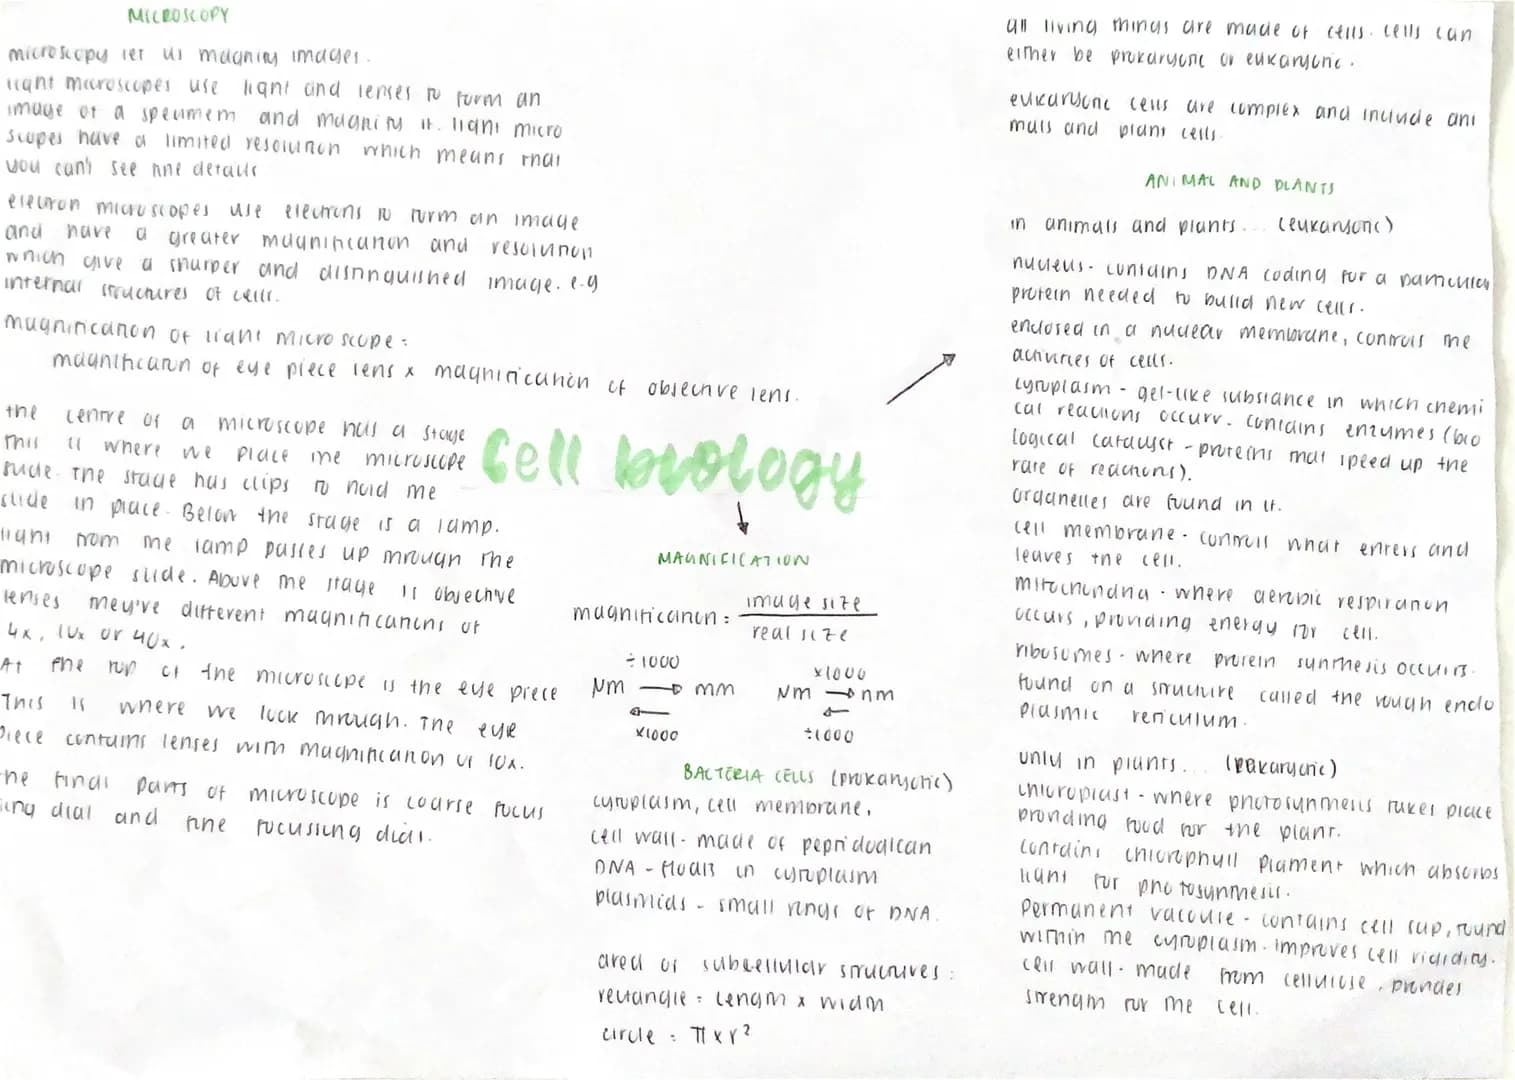 MICROSCOPY
microscopy let us magnify images.
light microscopes use light and lenses to form an
image of a specimem and magnify it. light micro
scopes have a limited resolution which means that
you can't see fine details
electron microscopes use electrons to form an image
and have a greater magnification and resolution
which give a sharper and distinguished image. e.g
internal structures of cells.
magnification of light microscope:
magnification of eye piece lens x magnification of objective lens.
the centre of a microscope has a stage
This is where we place the microscope
slide. The stage has clips to hold the
slide in place. Below the stage is a lamp.
light from the lamp passes up through the
microscope slide. Above the stage is objective
lenses they've different magnifications of
4x, 10x or 40x.
At the top of the microscope is the eye piece
This is where we look through. The eye
piece contains lenses with magnification of 10x.
the final parts of microscope is coarse focus
sing dial and fine focussing dial.
Cell biology
MAGNIFICATION
magnification = image size
real size
÷1000 x1000
Nm → mm Nm → nm
← ←
x1000 ÷1000
BACTERIA CELLS (prokaryotic)
cytoplasm, cell membrane,
cell wall - made of peptidoglican
DNA - floats in cytoplasm
plasmids - small rings of DNA.
area of subcellular structures:
rectangle = length x width
circle = π x r²
all living things are made of cells. cells can
either be prokaryotic or eukaryotic.
eukaryotic cells are complex and include ani
mals and plant cells
ANIMAL AND PLANTS
in animals and plants... (eukaryotic)
nucleus - contains DNA coding for a particular
protein needed to build new cells.
enclosed in a nuclear membrane, controls the
activities of cells.
cytoplasm - gel-like substance in which chemi
cal reactions occurr. contains enzymes (bio
logical catalyst - proteins that speed up the
rate of reactions).
organelles are found in it.
cell membrane - controls what enters and
leaves the cell.
mitochondria - where aerobic respiration
occurs, providing energy for cell.
ribosomes - where protein synthesis occurrs.
found on a structure called the rough endo
plasmic reticulum.
only in plants... (eukaryotic)
chloroplast - where photosynthesis takes place
providing food for the plant.
contains chlorophyll pigment which absorbs
light for photosynthesis.
permanent vacoule - contains cell sap, found
within the cytoplasm. improves cell rigidity.
cell wall - made from cellulose. provides
strength for the cell.